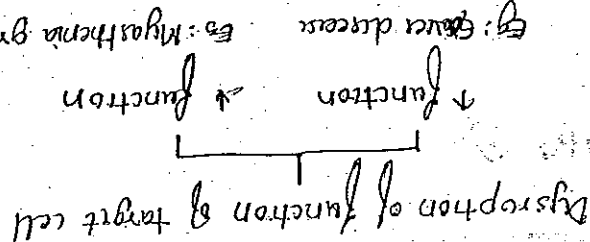 Dysruption of function of target cell
↑ function ↓ function
Eg: Graves disease Eg: Myasthenia gr